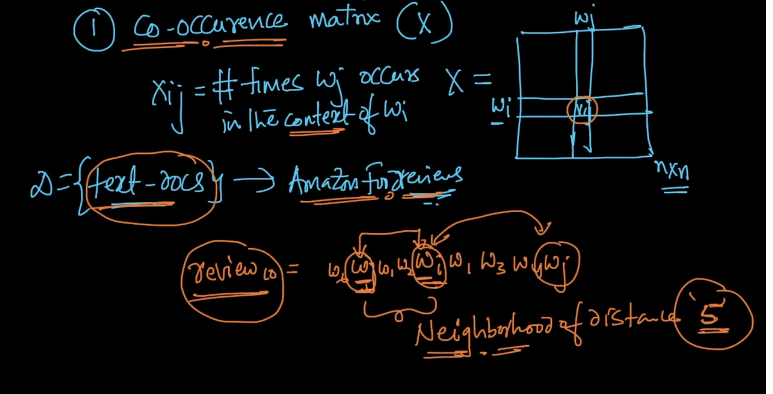 ① Co-occurence matrix (X)
wj
Xij = # times wj occurs X =
in the context of wi
wi
Xij
n x n
D = {text-docs} → Amazon food reviews
review10 = w1 wj w1 w2 wi w1 w3 w4 wj
Neighborhood of distance '5'